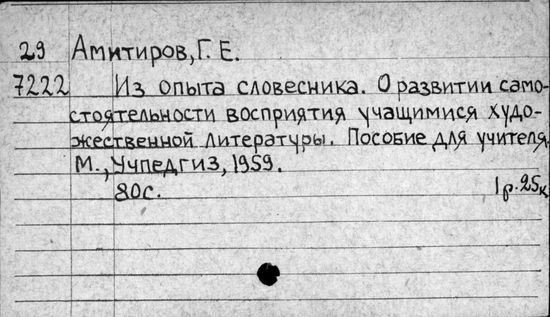 29 Амитиров, Г. Е.
7222 Из опыта словесника. О развитии само-
стоятельности восприятия учащимися худо-
жественной литературы. Пособие для учителя.
М., Учпедгиз, 1959.
80с. 1р.25к